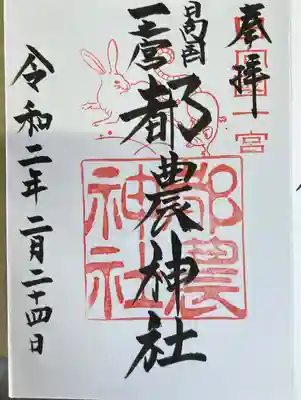 奉拝
一宮
日向国
一宮
都農神社
都農
神社
令和二年二月二十四日